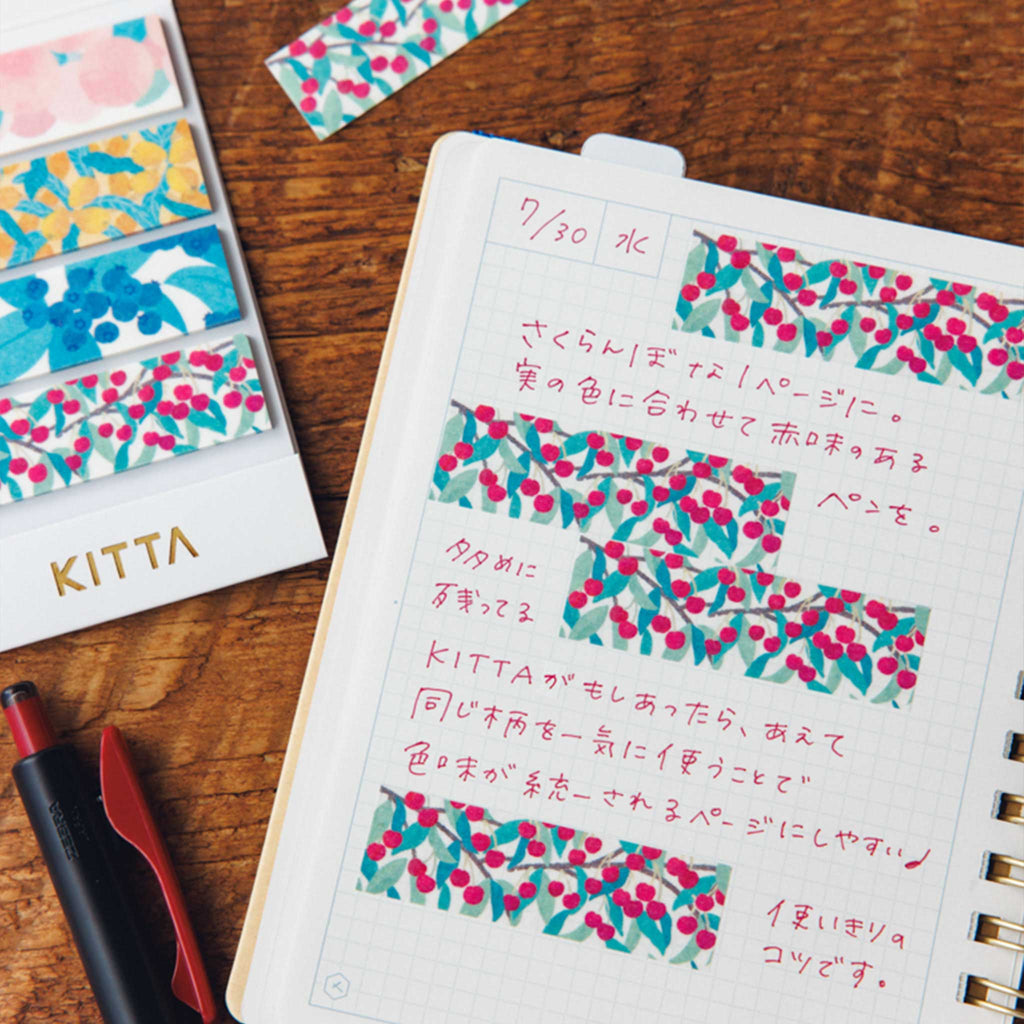 7/30 水
さくらんぼな1ページに。
実の色に合わせて赤味のある
ペンを。
多めに
残ってる
KITTAがもしあったら、あえて
同じ柄を一気に使うことで
色味が統一されるページにしやすい♪
使いきりの
コツです。
KITTA
ZEBRA